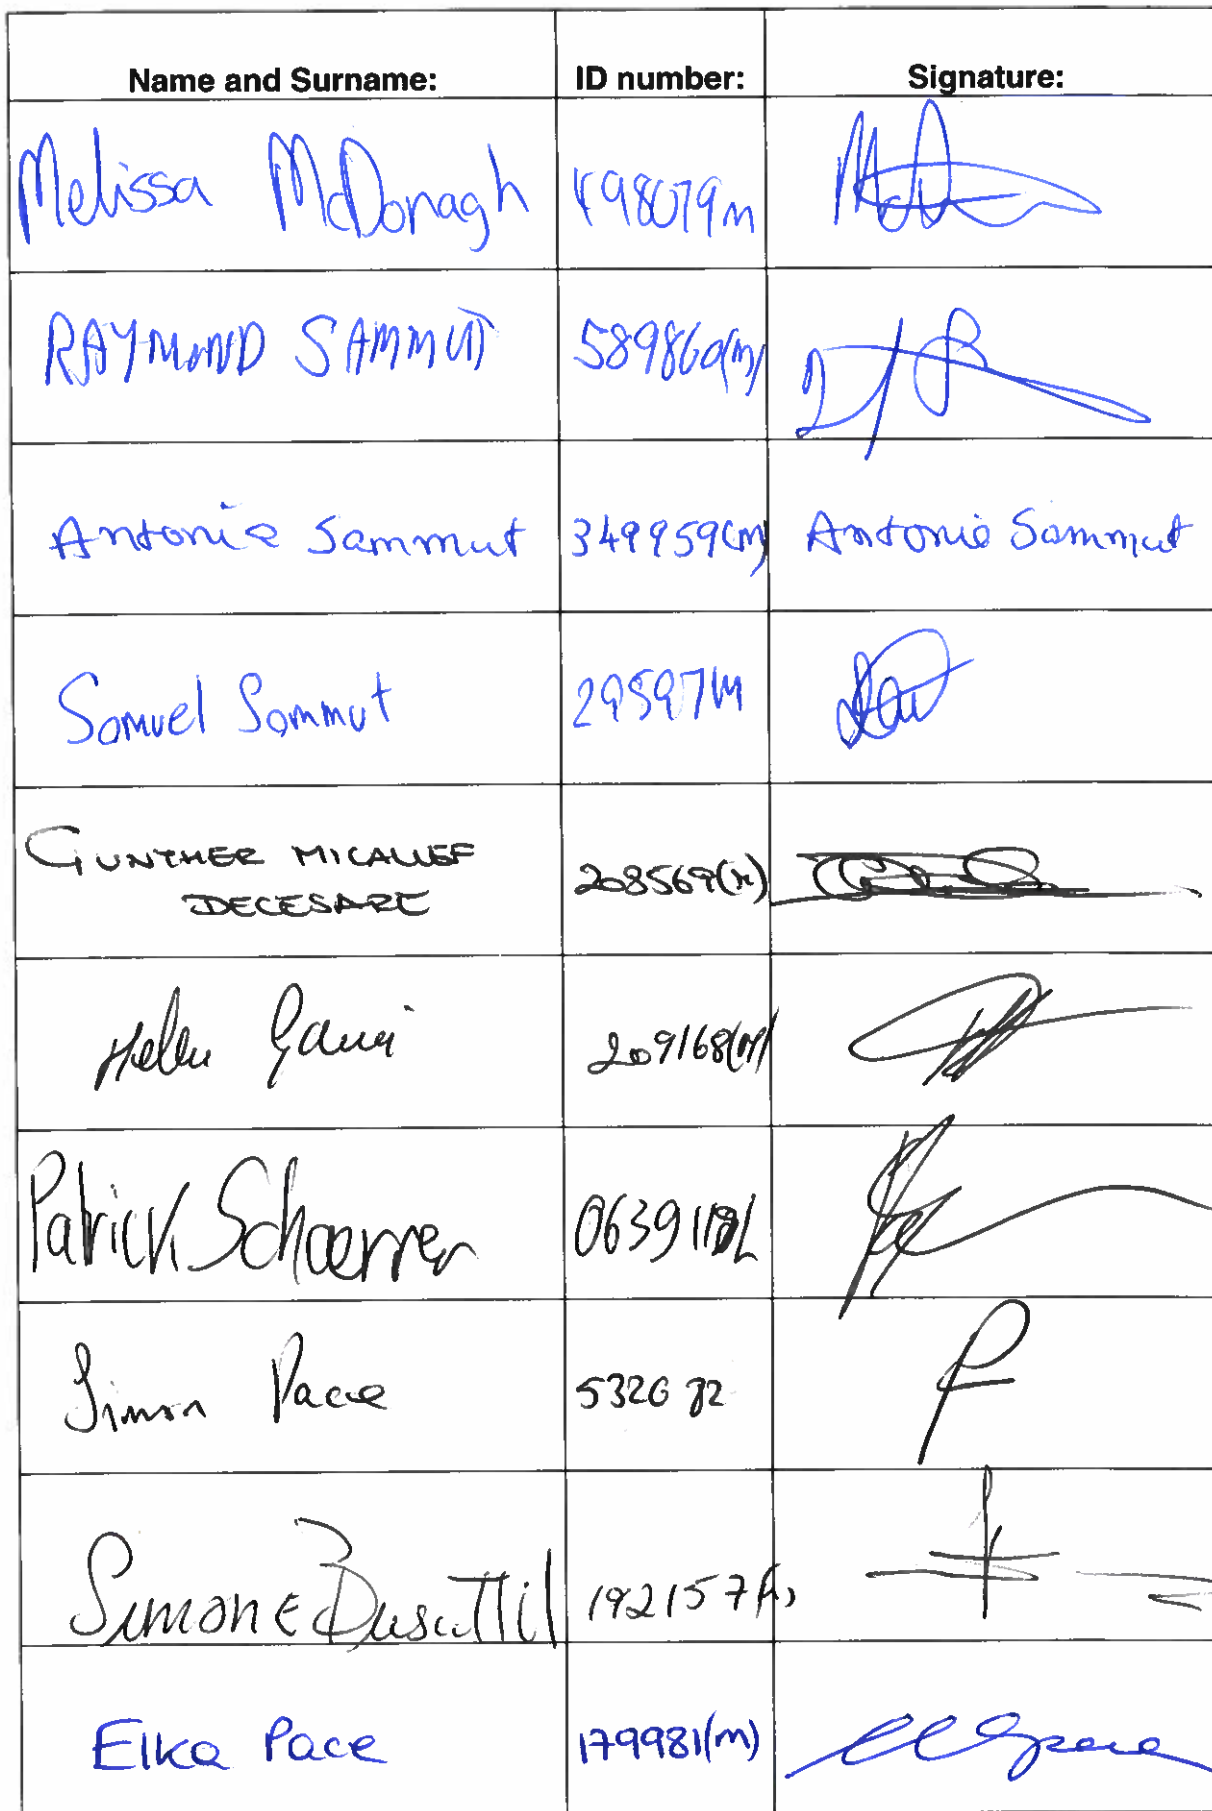 Name and Surname: ID number: Signature:
Melissa McDonagh 498079m
RAYMOND SAMMUT 589860(m)
Antonia Sammut 349959(m) Antonia Sammut
Samuel Sammut 29597M
GUNTHER MICALLEF
DECESARE 208569(M)
Helen Gauci 209168(M)
Patrick Schaerrer
Simon Pace 532682
Simone Busuttil 192157
Elka Pace 179981(m)